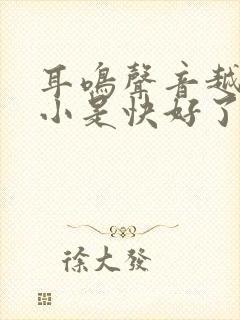 耳鳴聲音越
小是快好了
徐大發